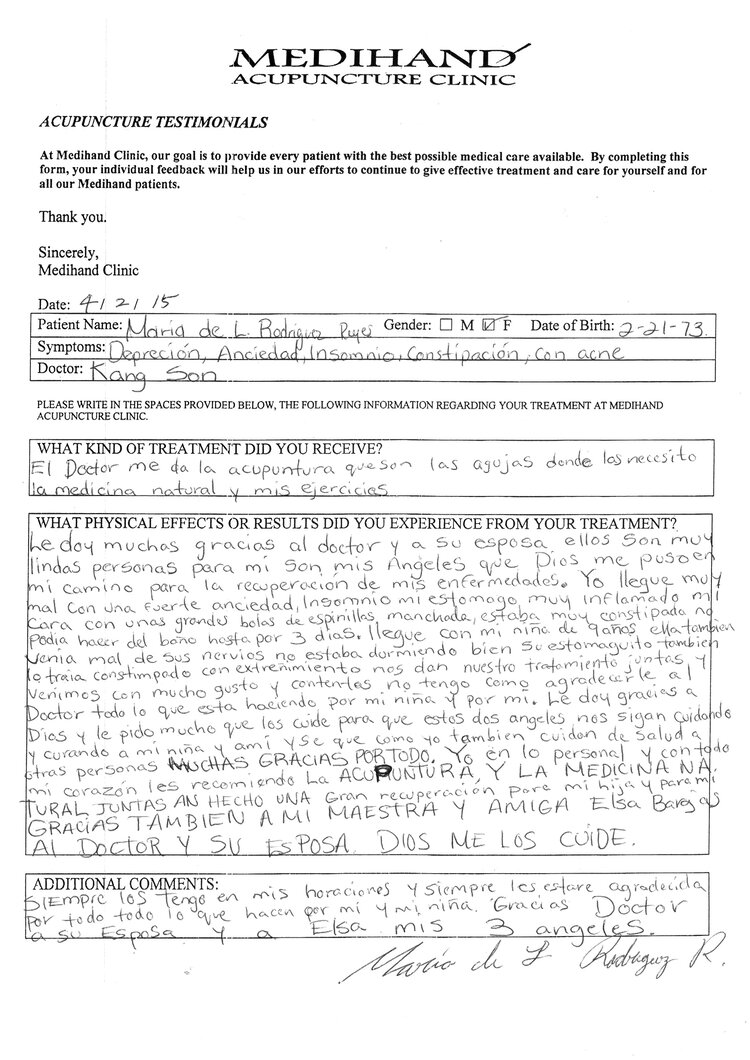 MEDIHAND
ACUPUNCTURE CLINIC
ACUPUNCTURE TESTIMONIALS
At Medihand Clinic, our goal is to provide every patient with the best possible medical care available. By completing this
form, your individual feedback will help us in our efforts to continue to give effective treatment and care for yourself and for
all our Medihand patients.
Thank you.
Sincerely,
Medihand Clinic
Date: 4/2/15
Patient Name: Maria de L. Rodriguez Gender: M F Date of Birth: 2-21-73.
Symptoms: Depreción, Anciedad, Insomnio, Constipación, con acne
Doctor: Kang Son
PLEASE WRITE IN THE SPACES PROVIDED BELOW, THE FOLLOWING INFORMATION REGARDING YOUR TREATMENT AT MEDIHAND
ACUPUNCTURE CLINIC.
WHAT KIND OF TREATMENT DID YOU RECEIVE?
El Doctor me da la acupuntura que son las agujas donde las necesito
la medicina natural y mis ejercicios
WHAT PHYSICAL EFFECTS OR RESULTS DID YOU EXPERIENCE FROM YOUR TREATMENT?
Le doy muchas gracias al doctor y a su esposa ellos son muy
lindas personas para mi son mis Angeles que Dios me puso en
mi camino para la recuperación de mis enfermedades. Yo llegue muy
mal con una fuerte anciedad, Insomnio mi estomago muy inflamado mi
cara con unas grandes bolas de espinillas, manchada, estaba muy constipada no
podia hacer del baño hasta por 3 dias. llegue con mi niña de 9 años ella tambien
venia mal de sus nervios no estaba dormiendo bien su estomaguito tambien
lo traia constimpado con extreñimiento nos dan nuestro tratamiento juntas y
venimos con mucho gusto y contentas no tengo como agradecerle al
Doctor todo lo que esta haciendo por mi niña y por mi. Le doy gracias a
Dios y le pido mucho que los cuide para que estos dos angeles nos sigan cuidando
y curando a mi niña y ami y se que como yo tambien cuidan de salud a
otras personas MUCHAS GRACIAS POR TODO. Yo en lo personal y con todo
mi corazón les recomiendo La ACUPUNTURA, Y LA MEDICINA NA
TURAL JUNTAS AN HECHO UNA Gran recuperación para mi hija y para mi
GRACIAS TAMBIEN A MI MAESTRA Y AMIGA Elsa
Al DOCTOR Y SU ESPOSA. DIOS ME LOS CUIDE.
ADDITIONAL COMMENTS:
SIEMPRE los tengo en mis horaciones y siempre les estare agradecida
por todo todo lo que hacen por mi y mi niña. Gracias Doctor
a su Esposa y a Elsa mis 3 angeles.
Maria de L Rodriguez R.